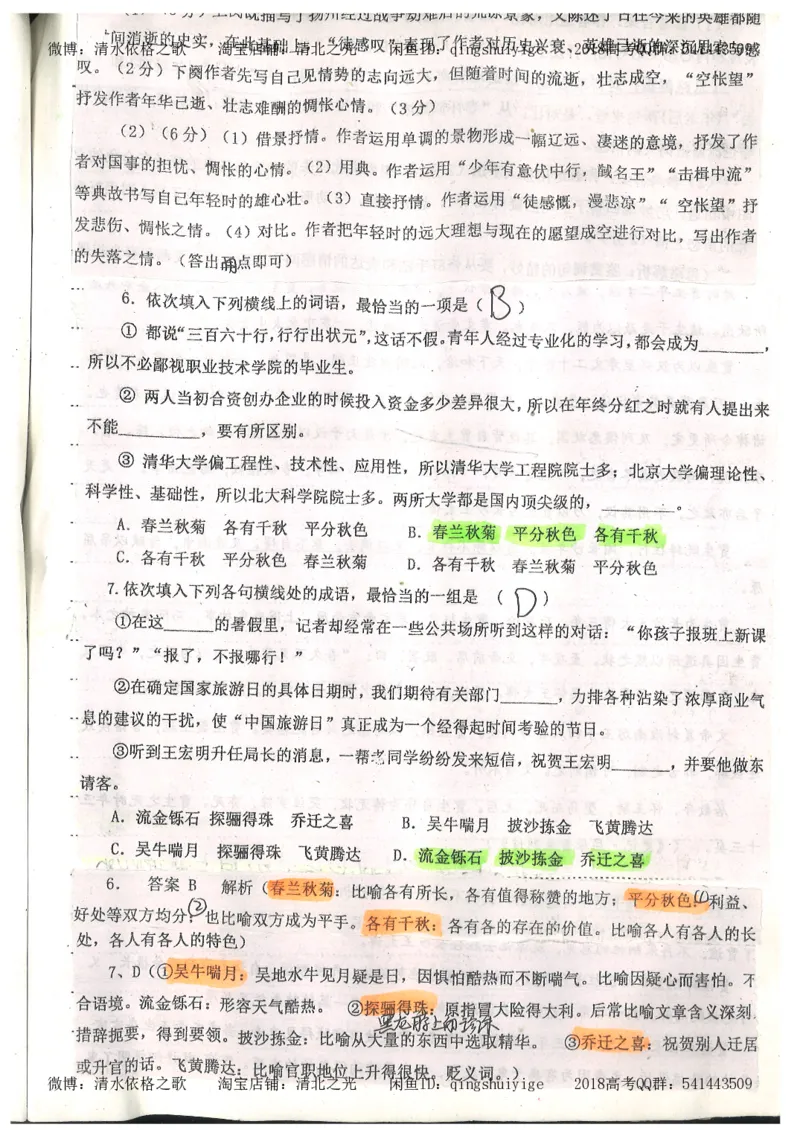 微博：清水依格之歌 淘宝店铺：清北之光 闲鱼ID：qingshuiyige 2018高考QQ群：541443509
叹。（2分）下阕作者先写自己见情势的志向远大，但随着时间的流逝，壮志成空，“空怅望”
抒发作者年华已逝、壮志难酬的惆怅心情。（3分）
（2）（6分）（1）借景抒情。作者运用单调的景物形成一幅辽远、凄迷的意境，抒发了作
者对国事的担忧、惆怅的心情。（2）用典。作者运用“少年有意伏中行，馘名王”“击楫中流”
等典故书写自己年轻时的雄心壮。（3）直接抒情。作者运用“徒感慨，漫悲凉”“ 空怅望”抒
发悲伤、惆怅之情。（4）对比。作者把年轻时的远大理想与现在的愿望成空进行对比，写出作者
的失落之情。（答出两点即可）
6. 依次填入下列横线上的词语，最恰当的一项是（ B ）
① 都说“三百六十行，行行出状元”，这话不假。青年人经过专业化的学习，都会成为________，
所以不必鄙视职业技术学院的毕业生。
② 两人当初合资创办企业的时候投入资金多少差异很大，所以在年终分红之时就有人提出来
不能________，要有所区别。
③ 清华大学偏工程性、技术性、应用性，所以清华大学工程院院士多；北京大学偏理论性、
科学性、基础性，所以北大科学院院士多。两所大学都是国内顶尖级的，________。
A. 春兰秋菊 各有千秋 平分秋色 B. 春兰秋菊 平分秋色 各有千秋
C. 各有千秋 平分秋色 春兰秋菊 D. 各有千秋 春兰秋菊 平分秋色
7. 依次填入下列各句横线处的成语，最恰当的一组是 （ D ）
①在这______的暑假里，记者却经常在一些公共场所听到这样的对话：“你孩子报班上新课
了吗？”“报了，不报哪行！”
②在确定国家旅游日的具体日期时，我们期待有关部门______，力排各种沾染了浓厚商业气
息的建议的干扰，使“中国旅游日”真正成为一个经得起时间考验的节日。
③听到王宏明升任局长的消息，一帮老同学纷纷发来短信，祝贺王宏明______，并要他做东
请客。
A. 流金铄石 探骊得珠 乔迁之喜 B. 吴牛喘月 披沙拣金 飞黄腾达
C. 吴牛喘月 探骊得珠 飞黄腾达 D. 流金铄石 披沙拣金 乔迁之喜
6. 答案 B 解析（春兰秋菊：比喻各有所长，各有值得称赞的地方；平分秋色：①利益、
好处等双方均分；②也比喻双方成为平手。各有千秋：各有各的存在的价值。比喻各人有各人的长
处，各人有各人的特色）
7、D（①吴牛喘月：吴地水牛见月疑是日，因惧怕酷热而不断喘气。比喻因疑心而害怕。不
合语境。流金铄石：形容天气酷热。 ②探骊得珠：原指冒大险得大利。后常比喻文章含义深刻，
措辞扼要，得到要领。披沙拣金：比喻从大量的东西中选取精华。 ③乔迁之喜：祝贺别人迁居
或升官的话。飞黄腾达：比喻官职地位上升得很快。贬义词。）
微博：清水依格之歌 淘宝店铺：清北之光 闲鱼ID：qingshuiyige 2018高考QQ群：541443509